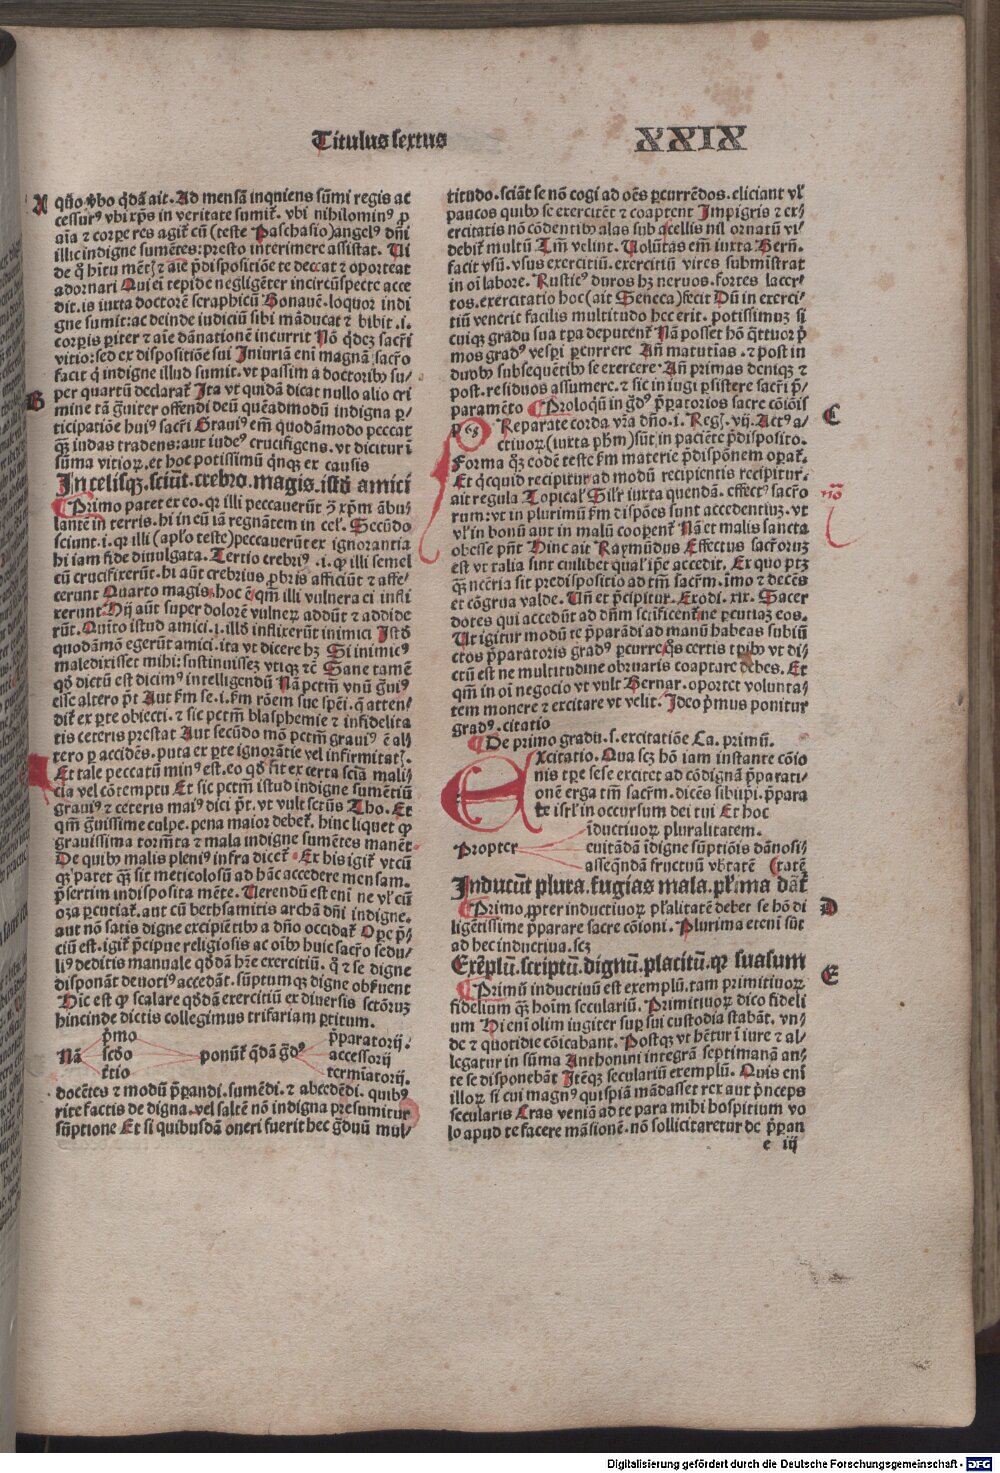 Titulus sextus
XXIX
A
qn̄o v̓bo q̇dā ait. Ad mensā inqniens sūmi regis ac
cessurꝰ vbi xp̄s in veritate sumit᷑. vbi nihilominꝰ ꝓ
aīa ⁊ corpe res agit᷑ cū (teste Paschasio) angelꝰ dn̄i
illic indigne sumētes: presto interimere assistat. Ui
de q̇ hītu mēt ⁊ aīe p̄dispositiōe te deccat ⁊ oporteat
adornari Qui eī tepide negligēter incircūspecte acce
dit. is iuxta doctorē seraphicū Bonauē. loquor indi
gne sumit: ac deinde iudiciū sibi māducat ⁊ bibit .i.
corpis piter ⁊ aīe dānationē incurrit Nō q̇dez sacri
vitio: sed ex dispositiōe sui Iniuriā enī magnā sacr̄o
facit q̇ indigne illud sumit. vt passim a doctoribꝰ su/
per quartū declarat᷑ Ita vt quidā dicat nullo alio cri
B
mine tā ḡuiter offendi deū quēadmodū indigna p/
ticipatiōe huiꝰ sacr̄i Grauiꝰ em̄ quodāmodo peccat
qꝫ iudas tradens: aut iudeꝰ crucifigens. vt dicitur ī
sūma vitioꝝ. et hoc potissimū q̇nqꝫ ex causis
In celisqꝫ. sciunt. crebro. magis. istō amici
Primo patet ex eo. qꝛ illi peccauerūt ꝯ xp̄m ābu/
lantē in terris. hi in eū iā regnātem in celꝰ. Secūdo
sciunt .i. qꝛ illi (aplo teste) peccauerūt ex ignorantia
hi iam fide diuulgata. Tertio crebriꝰ .i. ꝙ illi semel
cū crucifixerūt. hi aūt crebrius ꝓbris afficiūt ⁊ affe/
cerunt Quarto magis hoc ē q̄m illi vulnera ei infli
xerunt Hij aūt super dolorē vulnerꝝ addūt ⁊ addide
rūt. Quīto istud amici .i. illō inflixerūt inimici Istō
quodāmō egerūt amici. ita vt dicere hꝫ Si inimicꝰ
maledixisset mihi: sustinuissez vtiqꝫ ⁊c̄ Sane tamē
qd̄ dictū est dicimꝰ intelligendū Nā pctm̄ vnū ḡuiꝰ
esse altero pt̄ Aut fm̄ se .i. fm̄ rōem sue sp̄ei. q̄ atten/
dit᷑ ex pte obiecti. ⁊ sic pctm̄ blasphemie ⁊ infidelita
tis ceteris prestat Aut secūdo mō pctm̄ grauiꝰ ē al/
tero p accidēs. puta ex pte ignorātie vel infirmitat.
Et tale peccatū minꝰ est. eo qd̄ fit ex certa sciā mali/
cia vel cōtemptu Et sic pctm̄ istud indigne sumētiū
grauiꝰ ⁊ ceteris maiꝰ dici pt̄. vt vult sctūs Tho. Et
qm̄ ḡuissime culpe. pena maior debet᷑. hinc liquet ꝙ
grauissima tormēta ⁊ mala indigne sumētes manēt
De quibꝰ malis pleniꝰ infra dicet᷑ Ex his igit᷑ vtcū
qꝫ patet qꝫ sit meticolosū ad hāc accedere mensam.
p̄sertim indisposita mēte. Uerendū est enī ne vl̓ cū
oza percutiat᷑. aut cū bethsamitis archā dn̄i indigne.
aut nō satis digne excipiētibꝰ a dn̄o occidat᷑ Ops p̄/
ciū est. igit᷑ p̄cipue religiosis ac oībꝰ huic sacr̄o sedu/
liꝰ deditis manuale qd̄dā hr̄e exercitiū. q̇ ⁊ se digne
disponāt deuotiꝰ accedāt. sūptumqꝫ digne obseruent
Hic est ꝙ scalare qd̄dā exercitiū ex diuersis sctōruꝫ
hincinde dictis collegimus trifariam ptitum.
p̄mo
Nā scd̄o ponūt᷑ q̇dā ḡdꝰ
t̓tio
p̄paratorij.
accessorij
termīatorij.
docētes ⁊ modū p̄parandi. sumēdi. ⁊ abcedēdi. quibꝰ
rite factis de digna. vel saltē nō indigna presumitur
sūptione Et si quibusdā oneri fuerit hec ḡduū mul/
titudo. sciāt se nō cogi ad oēs pcurrēdos. eliciant vl̓
paucos quibꝰ se exercitēt ⁊ coaptent Impigris ⁊ ex/
ercitatis nō cōdentibꝰ alas sub ascellis nil ornatū vi/
debit᷑ multū Tm̄ velint. Uolūtas em̄ iuxta Bern̄.
facit vsū. vsus exercitiū. exercitiū vires submistrat
in oī labore. Rusticꝰ duros hꝫ neruos. fortes lacer/
tos. exercitatio hoc (ait Seneca) fecit Dū in exerci/
tiū venerit facilis multitudo hec erit. potissimuz si
cuiqꝫ gradu sua tp̄a deputent᷑ Nā posset hō q̇ttuor p̄
mos gradꝰ vesp̄i pcurrere An̄ matutias. ⁊ post in
duobꝰ subsequētibꝰ se exercere. An̄ primas deniqꝫ ⁊
post. residuos assumere. ⁊ sic in iugi psistere sacr̄i p̄/
paramēto Proloquiū in ḡdꝰ p̄paratorios sacre cōiōis
C
Preparate corda vr̄a dn̄o. i. Regꝝ. vij. Actꝰ a/
ctiuoꝝ (iuxta phm̄) sūt in paciēte p̄disposito.
Forma qꝫ eodē teste fm̄ materie p̄dispōnem opat᷑.
Et q̇cquid recipitur ad modū recipientis recipitur.
ait regula Topicalꝰ Sil̓r iuxta quendā. effectꝰ sacr̄o
nō
rum: vt in plurimū fm̄ dispōes sunt accedentiuꝫ. vt
vl̓ in bonū aut in malū coopent᷑ Nā et malis sancta
obesse pn̄t Hinc ait Raymūdus Effectus sacr̄oruꝫ
est vt talia sint cuilibet qual̓ ip̄e accedit. Ex quo ptꝫ
qꝫ nc̄eria sit predispositio ad tm̄ sacr̄m. imo ⁊ decēs
et cōgrua valde. Un̄ et p̄cipitur. Exodi. xix. Sacer
dotes qui accedūt ad dn̄m scificent᷑ ne pcutiaꝫ eos.
Ut igitur modū te p̄parādi ad manū habeas subiū
ctos p̄paratoris gradꝰ pcurre q̇s certis tpibꝰ vt di/
ctū est ne multitudine obruaris coaptare debes. Et
qm̄ in oī negocio vt vult Bernar. oportet volunta/
tem monere ⁊ excitare vt velit. Ideo p̄mus ponitur
gradꝰ. citatio
De primo gradu. s. excitatiōe Ca. primū.
Excitatio. Qua scꝫ hō iam instante cōio
nis tp̄e sese excitet ad cōdignā p̄parati/
onē erga tm̄ sacr̄m. dicēs sibi ipi. p̄para
te isrl̓ in occursum dei tui Et hoc
Propter
inductiuoꝝ pluralitatem.
euitādā īdigne sūptiōis dānosi/
asseq̄ndā fructuū vb̓tatē (tatē
Inducūt plura. fugias mala. pl̓ima dāt᷑
D
Primo ꝓpter inductiuoꝝ pl̓alitatē debet se hō di
ligētissime p̄parare sacre cōioni. Plurima etenī sūt
ad hec inductiua. scꝫ
Exēplū. scriptū. dignū. placitū. qꝛ suasum
E
Primū inductiuū est exemplū. tam primitiuoꝝ
fidelium qꝫ hoīm seculariū. Primitiuoꝝ dico fideli
um Hi enī olim iugiter sup sui custodia stabāt. vn/
de ⁊ quotidie cōicabant. Postqꝫ vt hētur ī iure ⁊ al/
legatur in sūma Anthonini integrā septimanā an/
te se disponebāt Itēqꝫ seculariū exemplū. Quis enī
illoꝝ si cui magnꝰ quispiā mādasset rex aut p̄nceps
secularis Cras veniā ad te para mihi hospitium vo
lo apud te facere māsionē. nō sollicitaretur de p̄paran
e iij
Digitalisierung gefördert durch die Deutsche Forschungsgemeinschaft - DFG